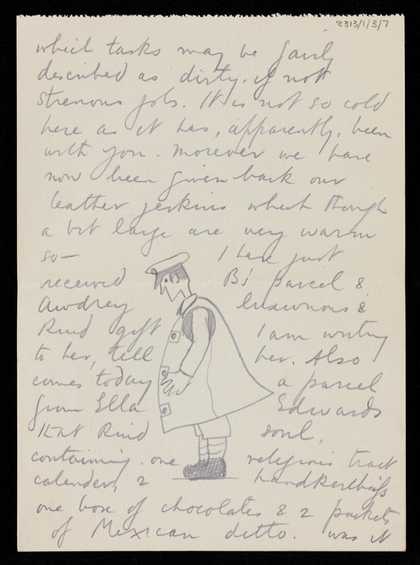 8313/1/3/7
which tasks may be fairly
described as dirty. if not
strenous jobs. It is not so cold
here as it has, apparently, been
with you. Morever we have
now been given back our
leather jerkins which though
a bit large are very warm
so— I have just
received Bi parcel &
Awdrey luxurious &
Kind gift I am writing
to her, tell her. Also
comes today a parcel
from Ella Edwards
that Kind soul,
containing one religious tract
calender, 2 handkerchiefs
one box of chocolates & 2 packets
of Mexican ditto. was it